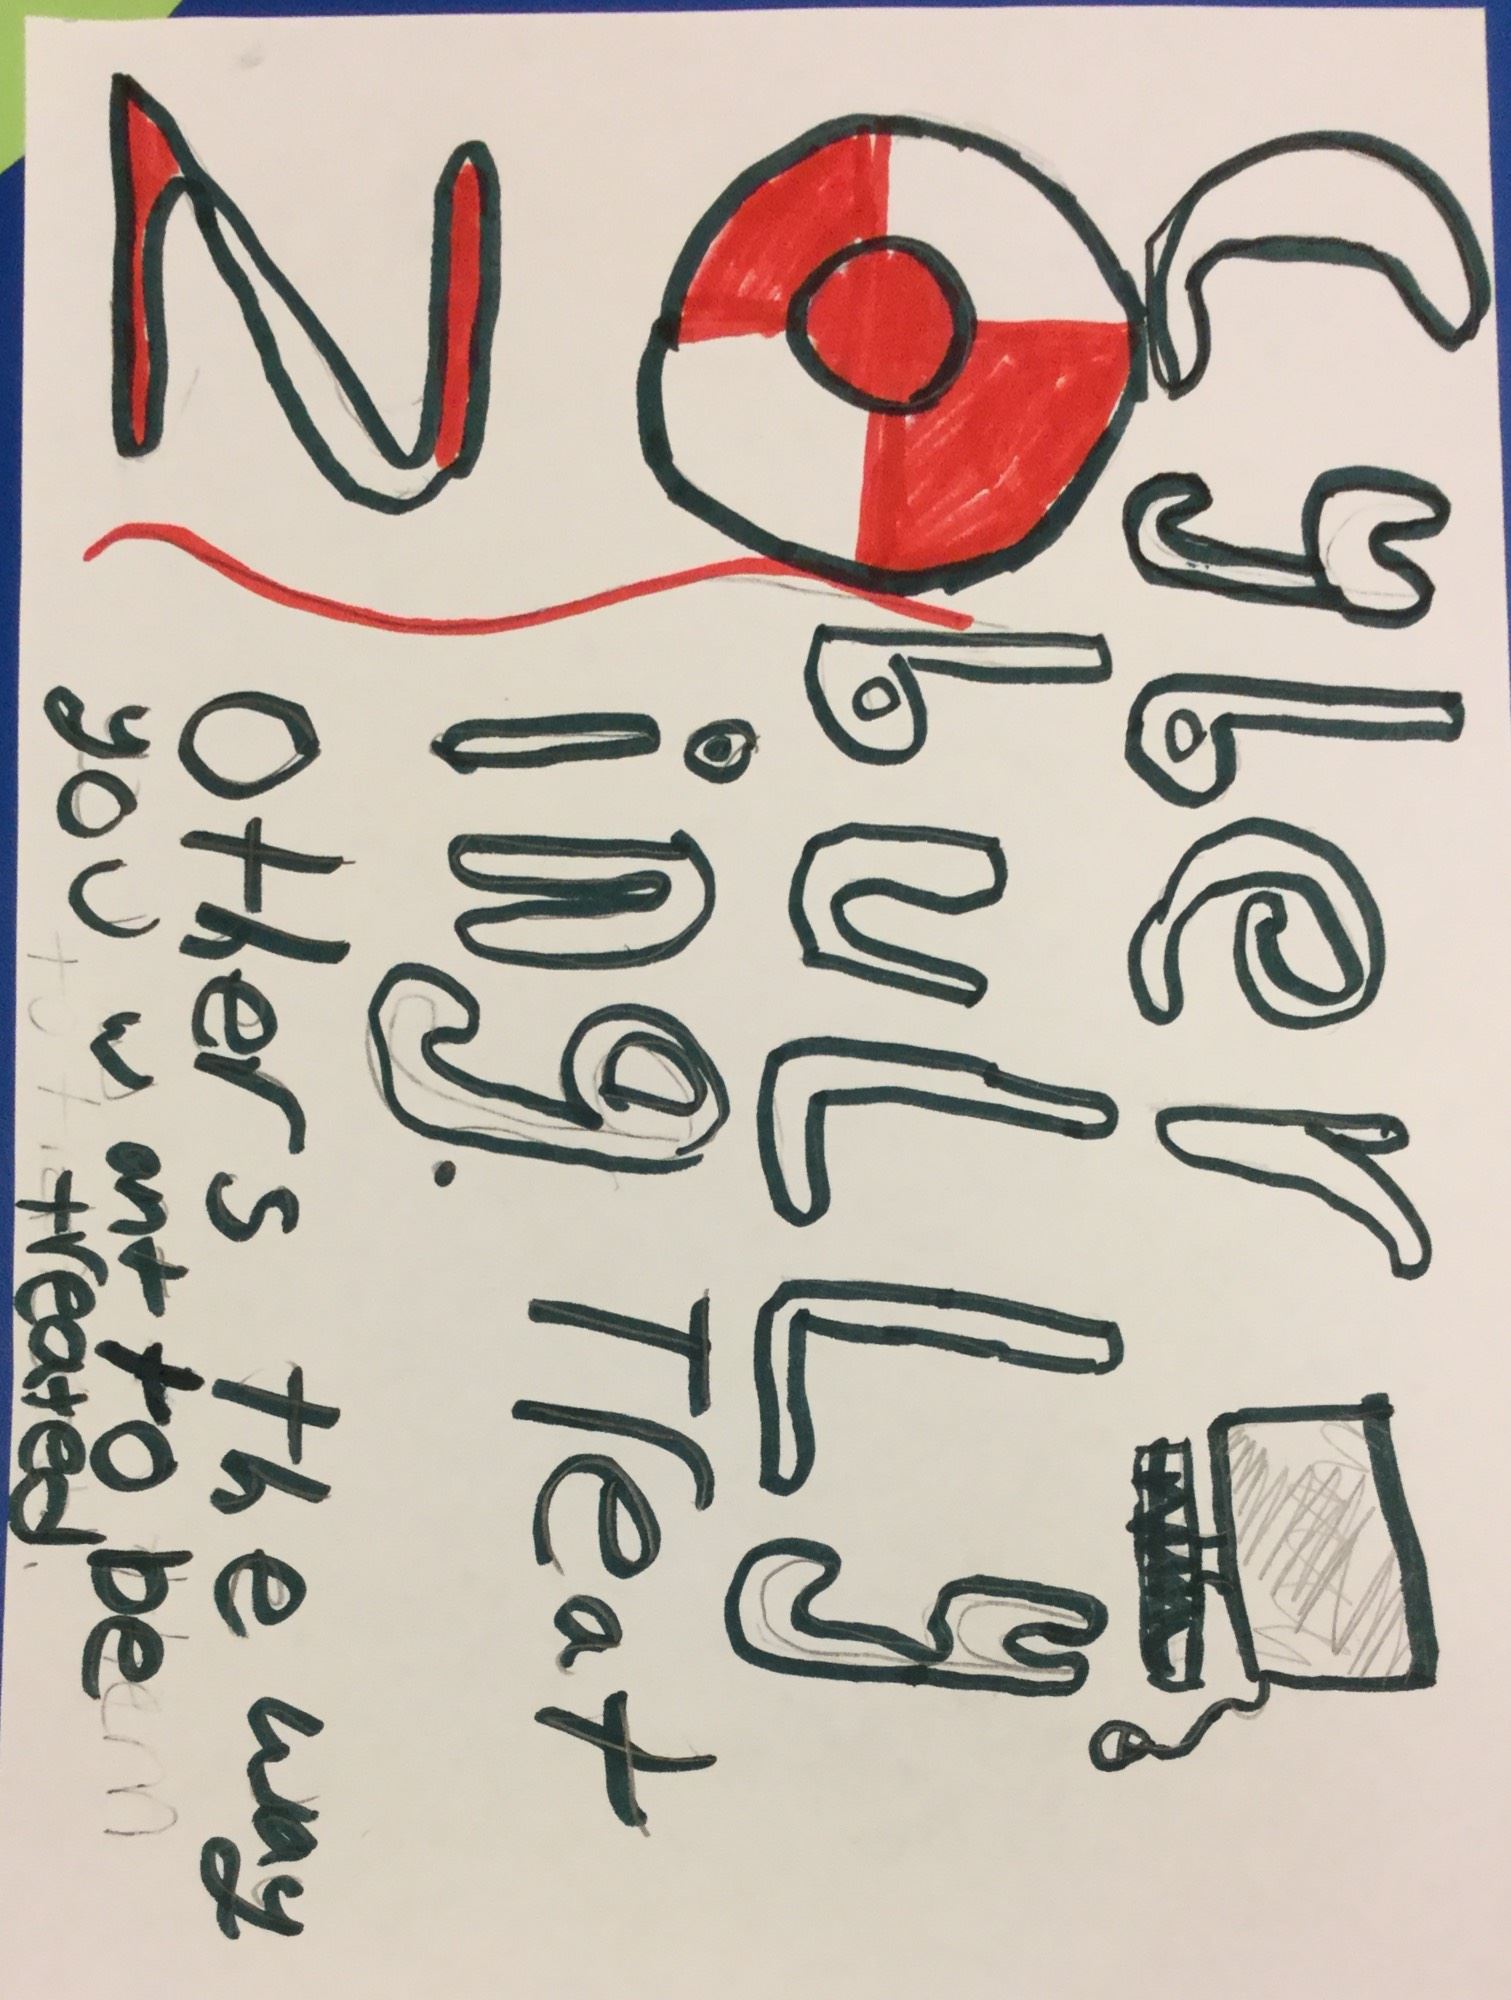 NO
Cyber
bulLy
ing. Treat
Others the way
you want to be
treated.